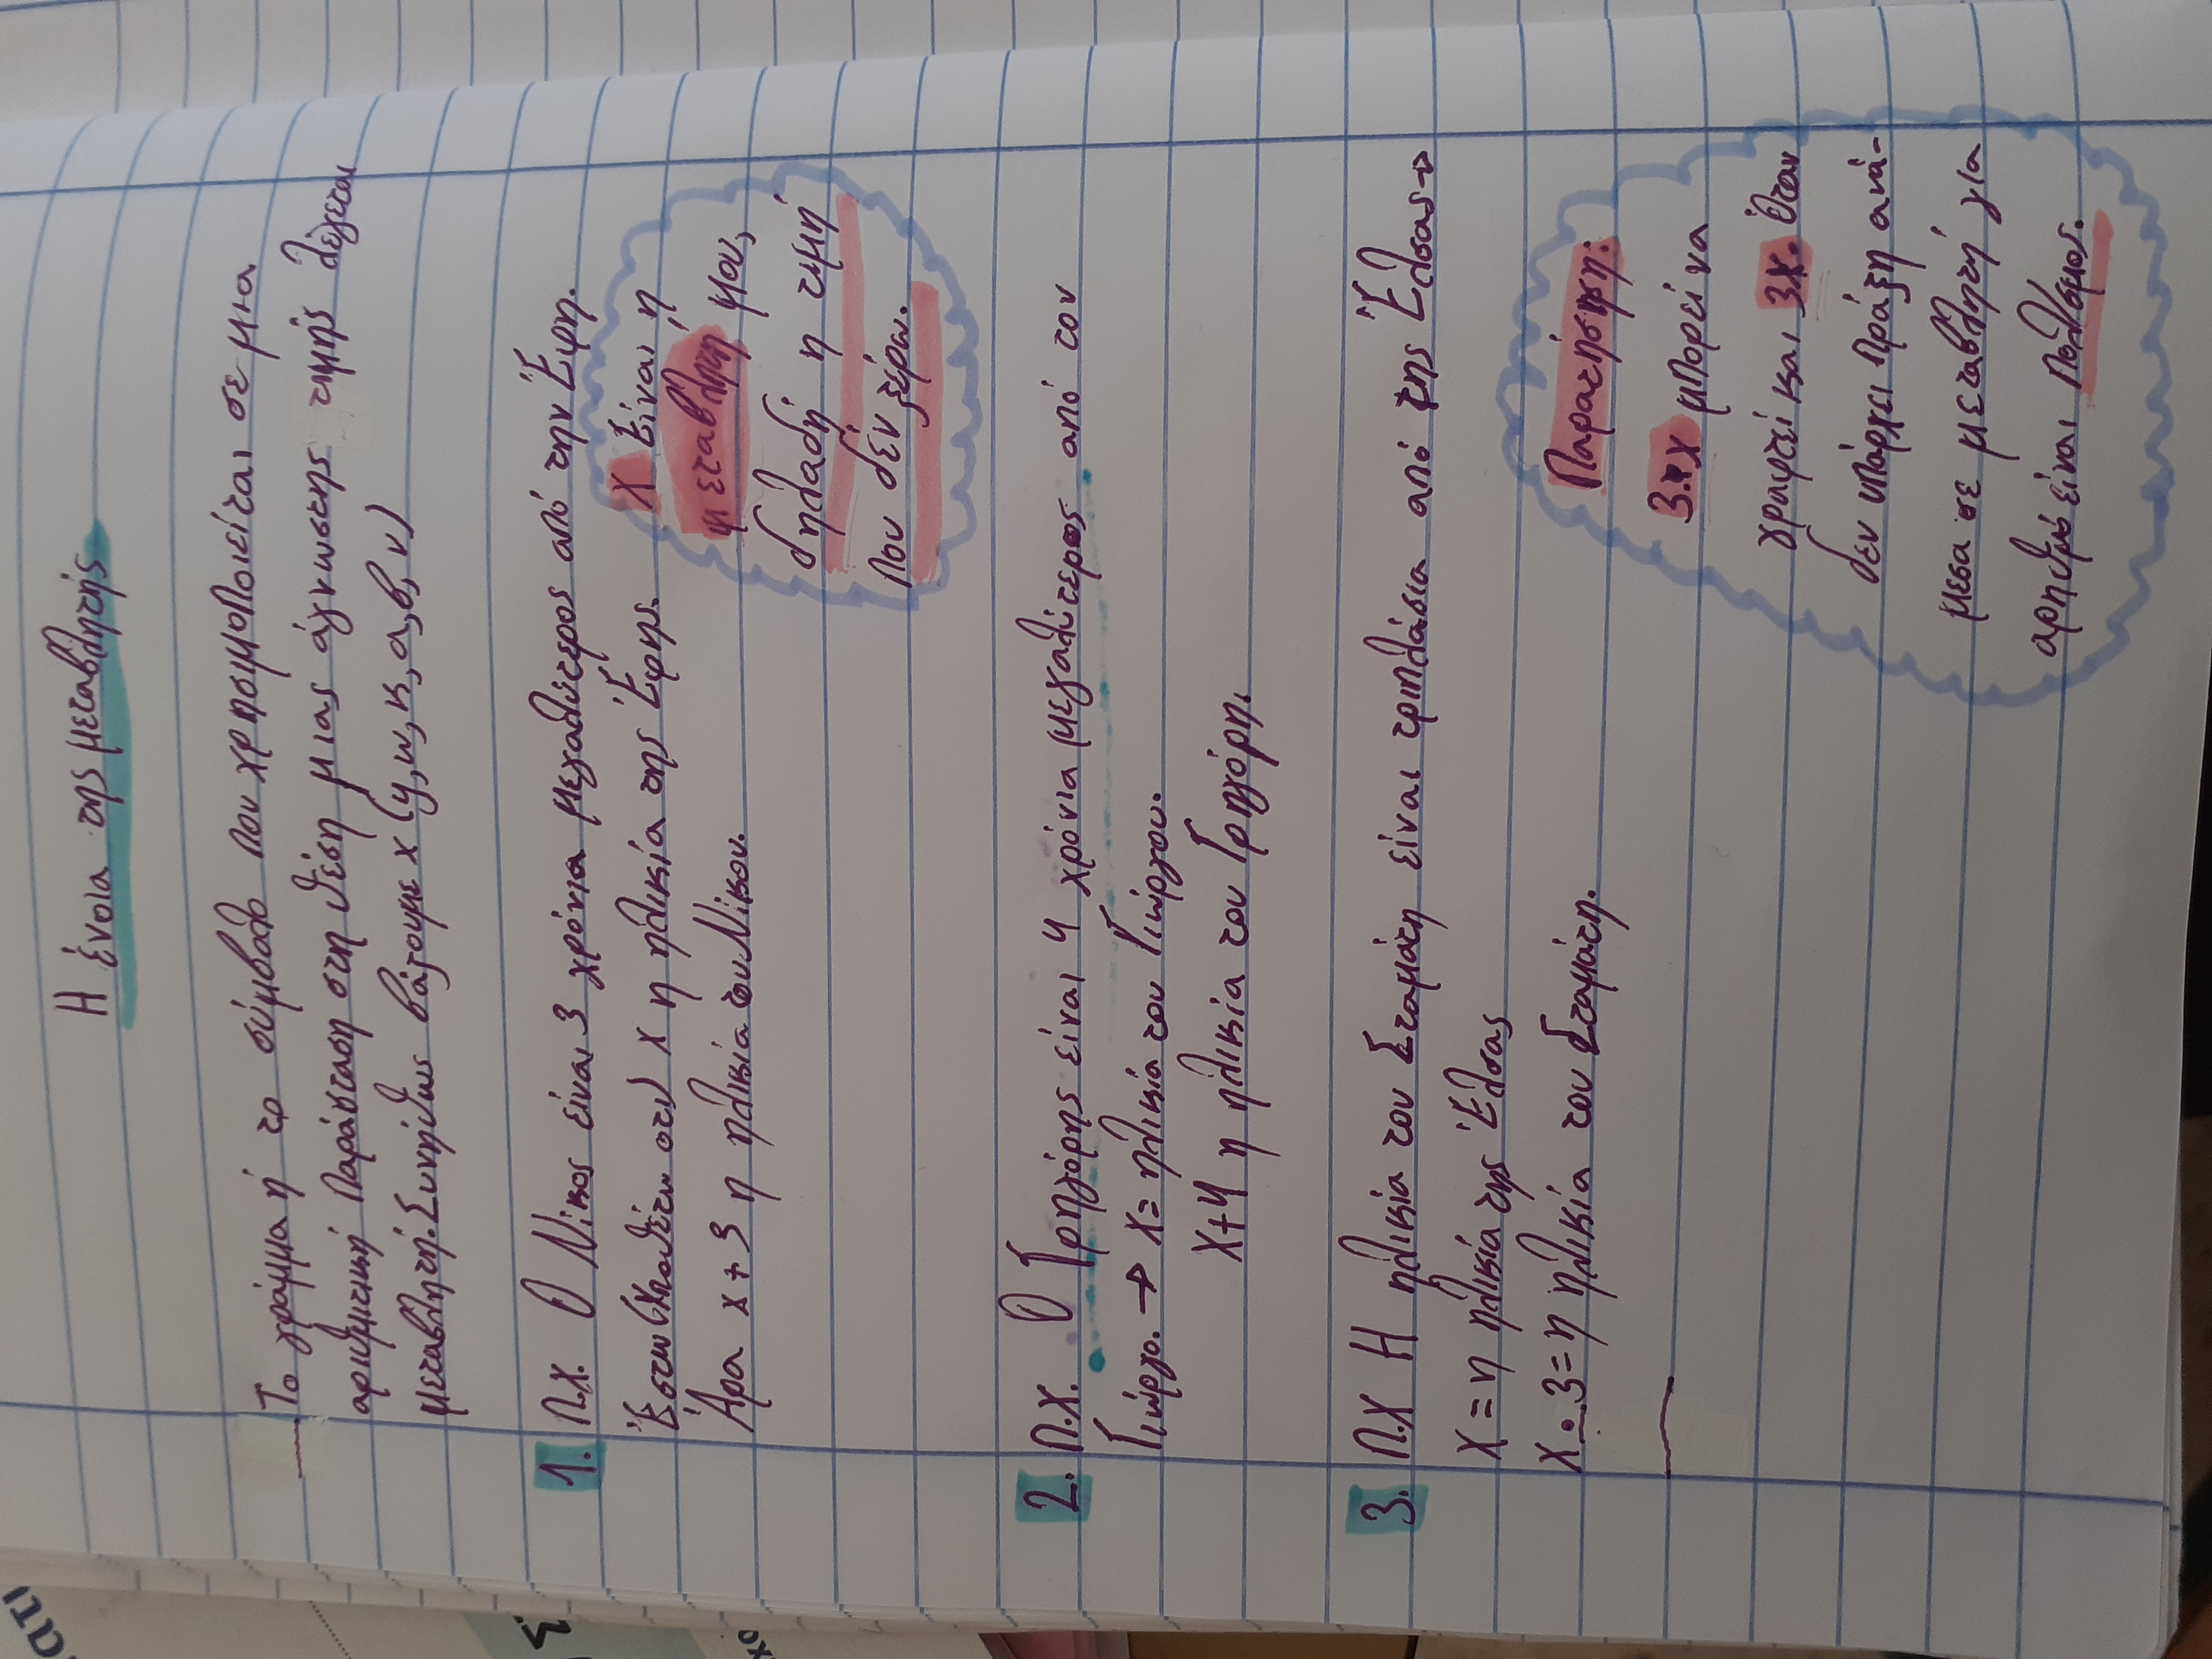 Η έννοια της μεταβλητής
Το γράμμα ή το σύμβολο που χρησιμοποιείται σε μια
αριθμητική παράσταση στη θέση μιας άγνωστης τιμής λέγεται
μεταβλητή. Συνήθως βάζουμε x (y, ω, κ, α, β, ν)
1. π.χ. Ο Νίκος είναι 3 χρόνια μεγαλύτερος από την Έφη.
Έστω (υποθέτω ότι) x η ηλικία της Έφης.
Άρα x + 3 η ηλικία του Νίκου.
x είναι η
μεταβλητή μου,
δηλαδή η τιμή
που δεν ξέρω.
2. π.χ. Ο Γρηγόρης είναι 4 χρόνια μεγαλύτερος από τον
Γιώργο. → x = ηλικία του Γιώργου.
x+4 η ηλικία του Γρηγόρη.
3. π.χ Η ηλικία του Σταμάτη είναι τριπλάσια από της Έλσας→
x = η ηλικία της Έλσας
x · 3 = η ηλικία του Σταμάτη.
Παρατήρηση:
3·x μπορεί να
γραφτεί και 3x. Όταν
δεν υπάρχει πράξη ανά-
μεσα σε μεταβλητή για
αρηθμό είναι πολ/σμος.